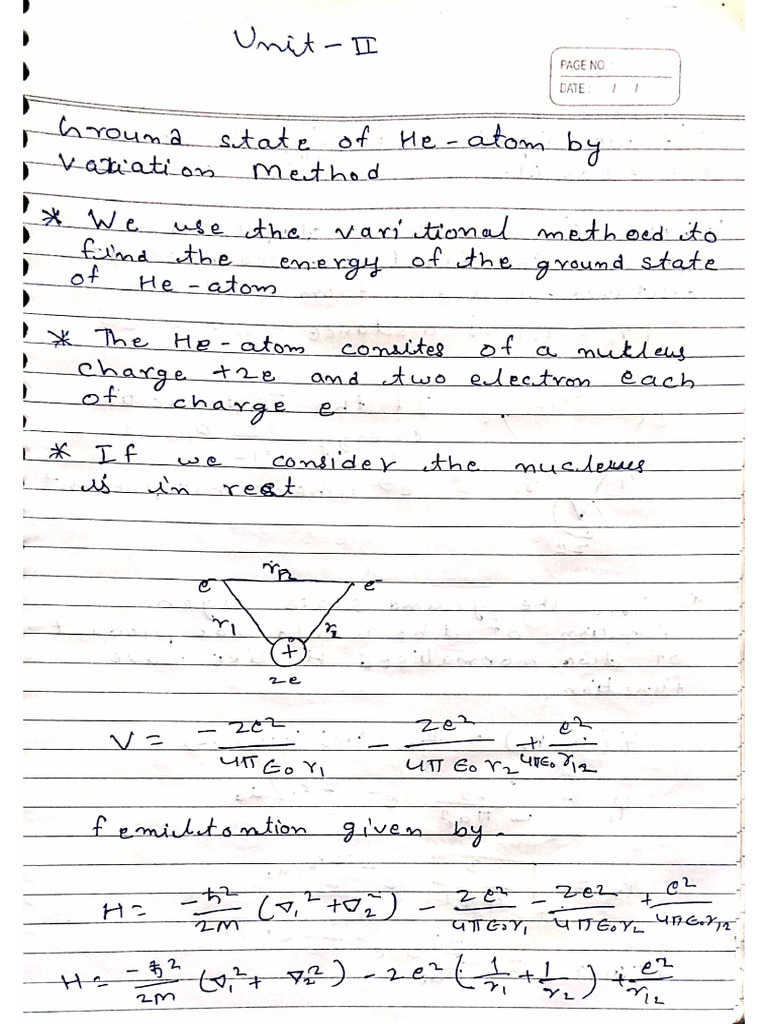 Unit - II
PAGE NO.:
DATE: / /
Ground state of He-atom by
Variation Method
* We use the varitional method to
find the energy of the ground state
of He-atom
* The He-atom consites of a nukleus
charge +2e and two electron each
of charge e.
* If we consider the nucleus
is in rest.
r₁₂
e e
r₁ r₂
+
2e
V = -2e²/4πϵ₀r₁ - 2e²/4πϵ₀r₂ + e²/4πϵ₀r₁₂
given by.
H = -ħ²/2m (∇₁² + ∇₂²) - 2e²/4πϵ₀r₁ - 2e²/4πϵ₀r₂ + e²/4πϵ₀r₁₂
H = -ħ²/2m (∇₁² + ∇₂²) - 2e² (1/r₁ + 1/r₂) + e²/r₁₂